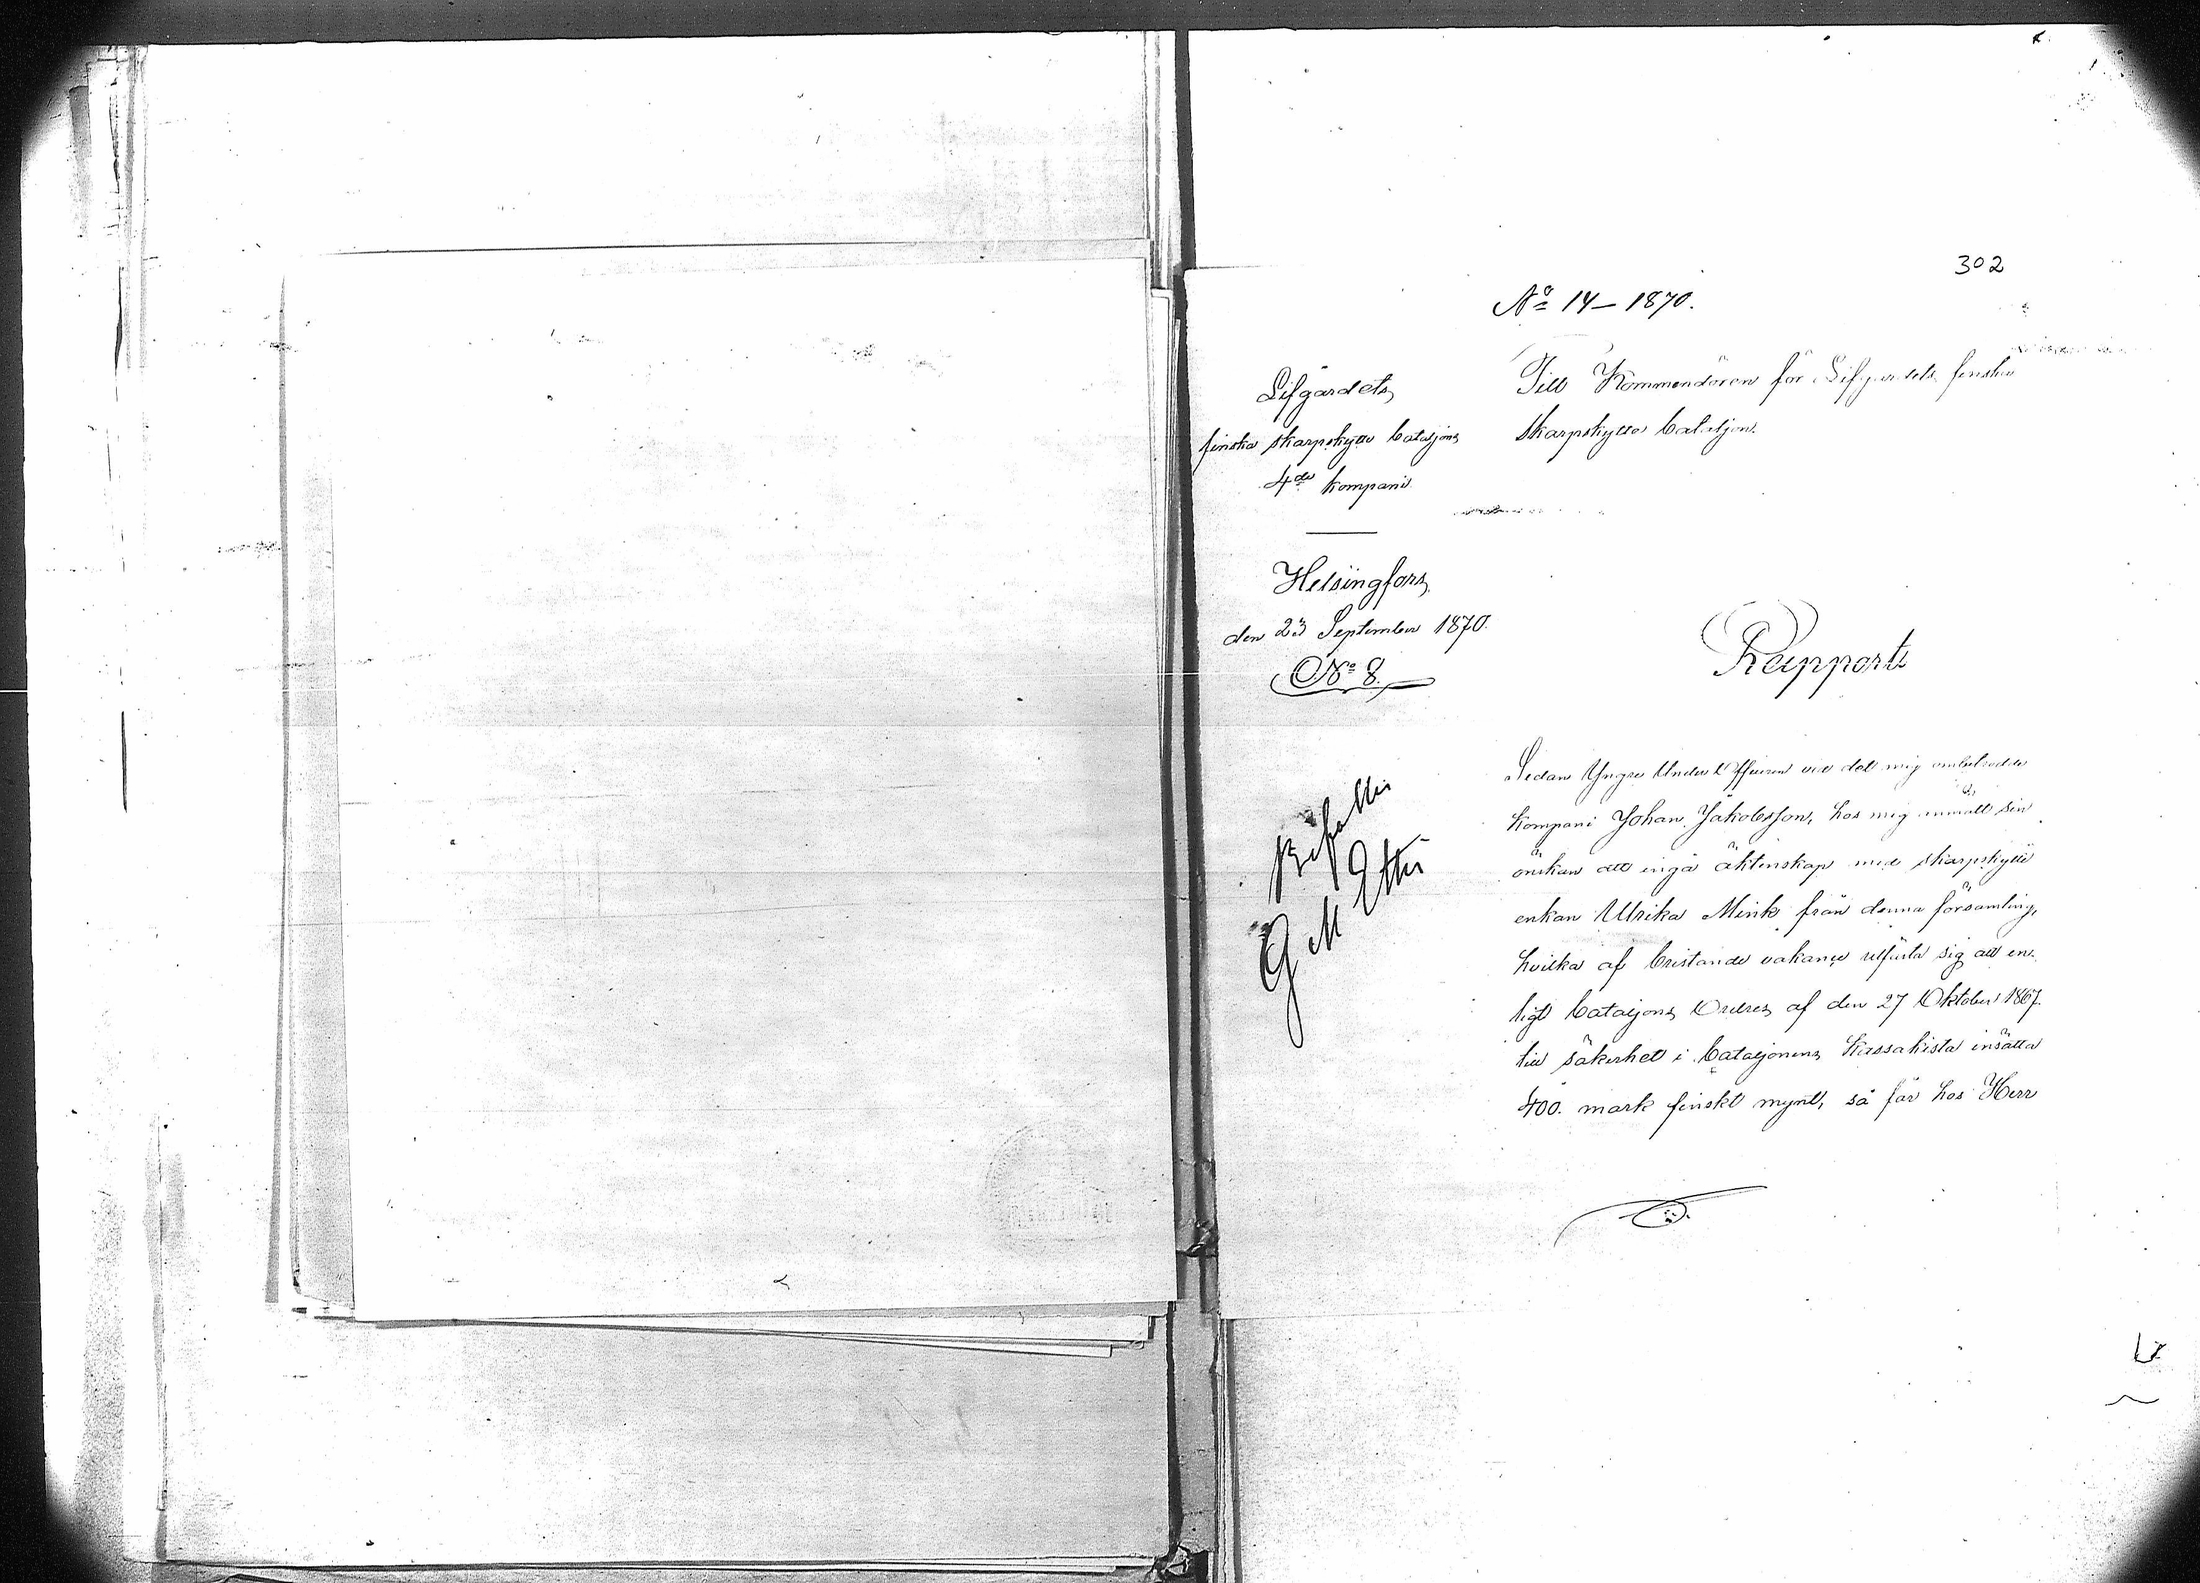 302
No 14 – 1870.
Lifgardets
finska skarpskytte bataljons
4de kompani
Helsingfors,
den 23 September 1870.
No 8.
Till Kommendören för Lifgardets finska
skarpskytte bataljon.
Rapport
Sedan Yngre Under Officeren vid det mig ombetrodde
kompani Johan Jakobsson, hos mig anmält sin
önskan att ingå äktenskap med skarpskytte
enkan Ulrika Mink från denna församling,
hvilka af bristande vakance utfäst sig att en-
ligt bataljons Ordres af den 27 Oktober 1867.
till säkerhet i bataljonens kassakista insätta
400. mark finskt mynt, så får hos Herr
Bifalles
G M Etter